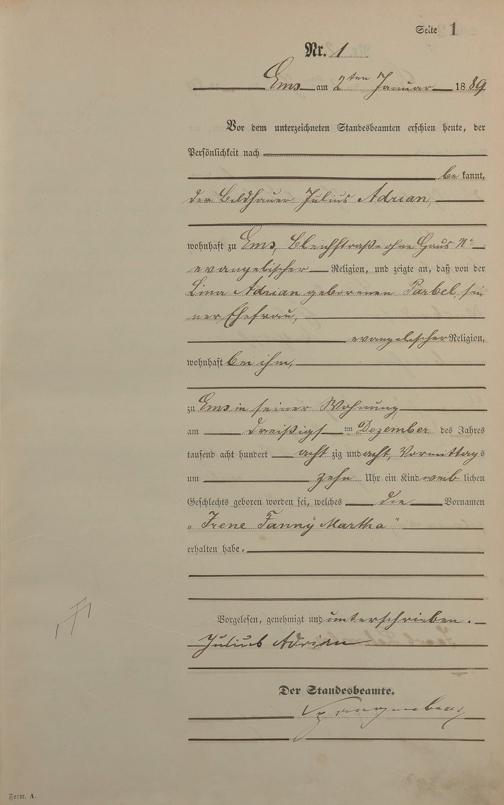 Seite 1
Nr. 1
Ems am 2ten Januar 1889
Vor dem unterzeichneten Standesbeamten erschien heute, der
Persönlichkeit nach
be kannt,
der Bildhauer Julius Adrian,
wohnhaft zu Ems, Bleichstraße ohne Haus No
evangelischer Religion, und zeigte an, daß von der
Lina Adrian geborenen Parbel, sei
ner Ehefrau,
evangelischer Religion,
wohnhaft bei ihm,
zu Ems in seiner Wohnung
am dreißigst im Dezember des Jahres
tausend acht hundert acht zig und acht, Vormittags
um zehn Uhr ein Kind weib lichen
Geschlechts geboren worden sei, welches die Vornamen
„Irene Fanny Martha“
erhalten habe.
Vorgelesen, genehmigt und unterschrieben.
Julius Adrian
Der Standesbeamte.
Form. A.